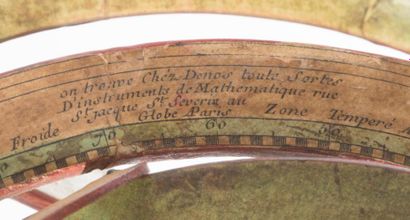 on trouve Chéz Denos toute Sortes
D'instruments de Mathematique rue
St. Jacque St. Severin au
Globe AParis
Froide Zone Temperé
50 60 50